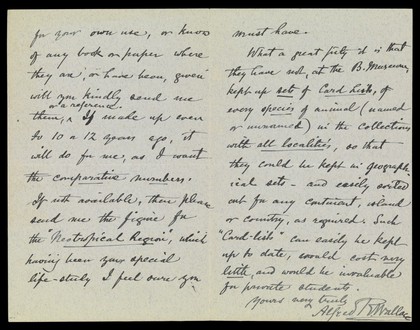 for your own use, or know
of any book or paper where
they are, or have been, given
will you kindly send me
or a reference.
them, ^ If made up even
to 10 or 12 years ago, it
will do for me, as I want
the comparative numbers.
If not available, then please
send me the figures for
the "Neotropical Region", which
having been your special
life-study I feel sure you
must have.
What a great pity it is that
they have not, at the B. Museum,
kept up sets of Card lists, of
every species of animal (named
or unnamed) in the collections
with all localities, so that
they could be kept in geograph-
ical sets - and easily sorted
out for any continent, island
or country, as required. Such
"Card-lists" can easily be kept
up to date, would cost very
little, and would be invaluable
for private students.
Yours very truly
Alfred R. Wallace